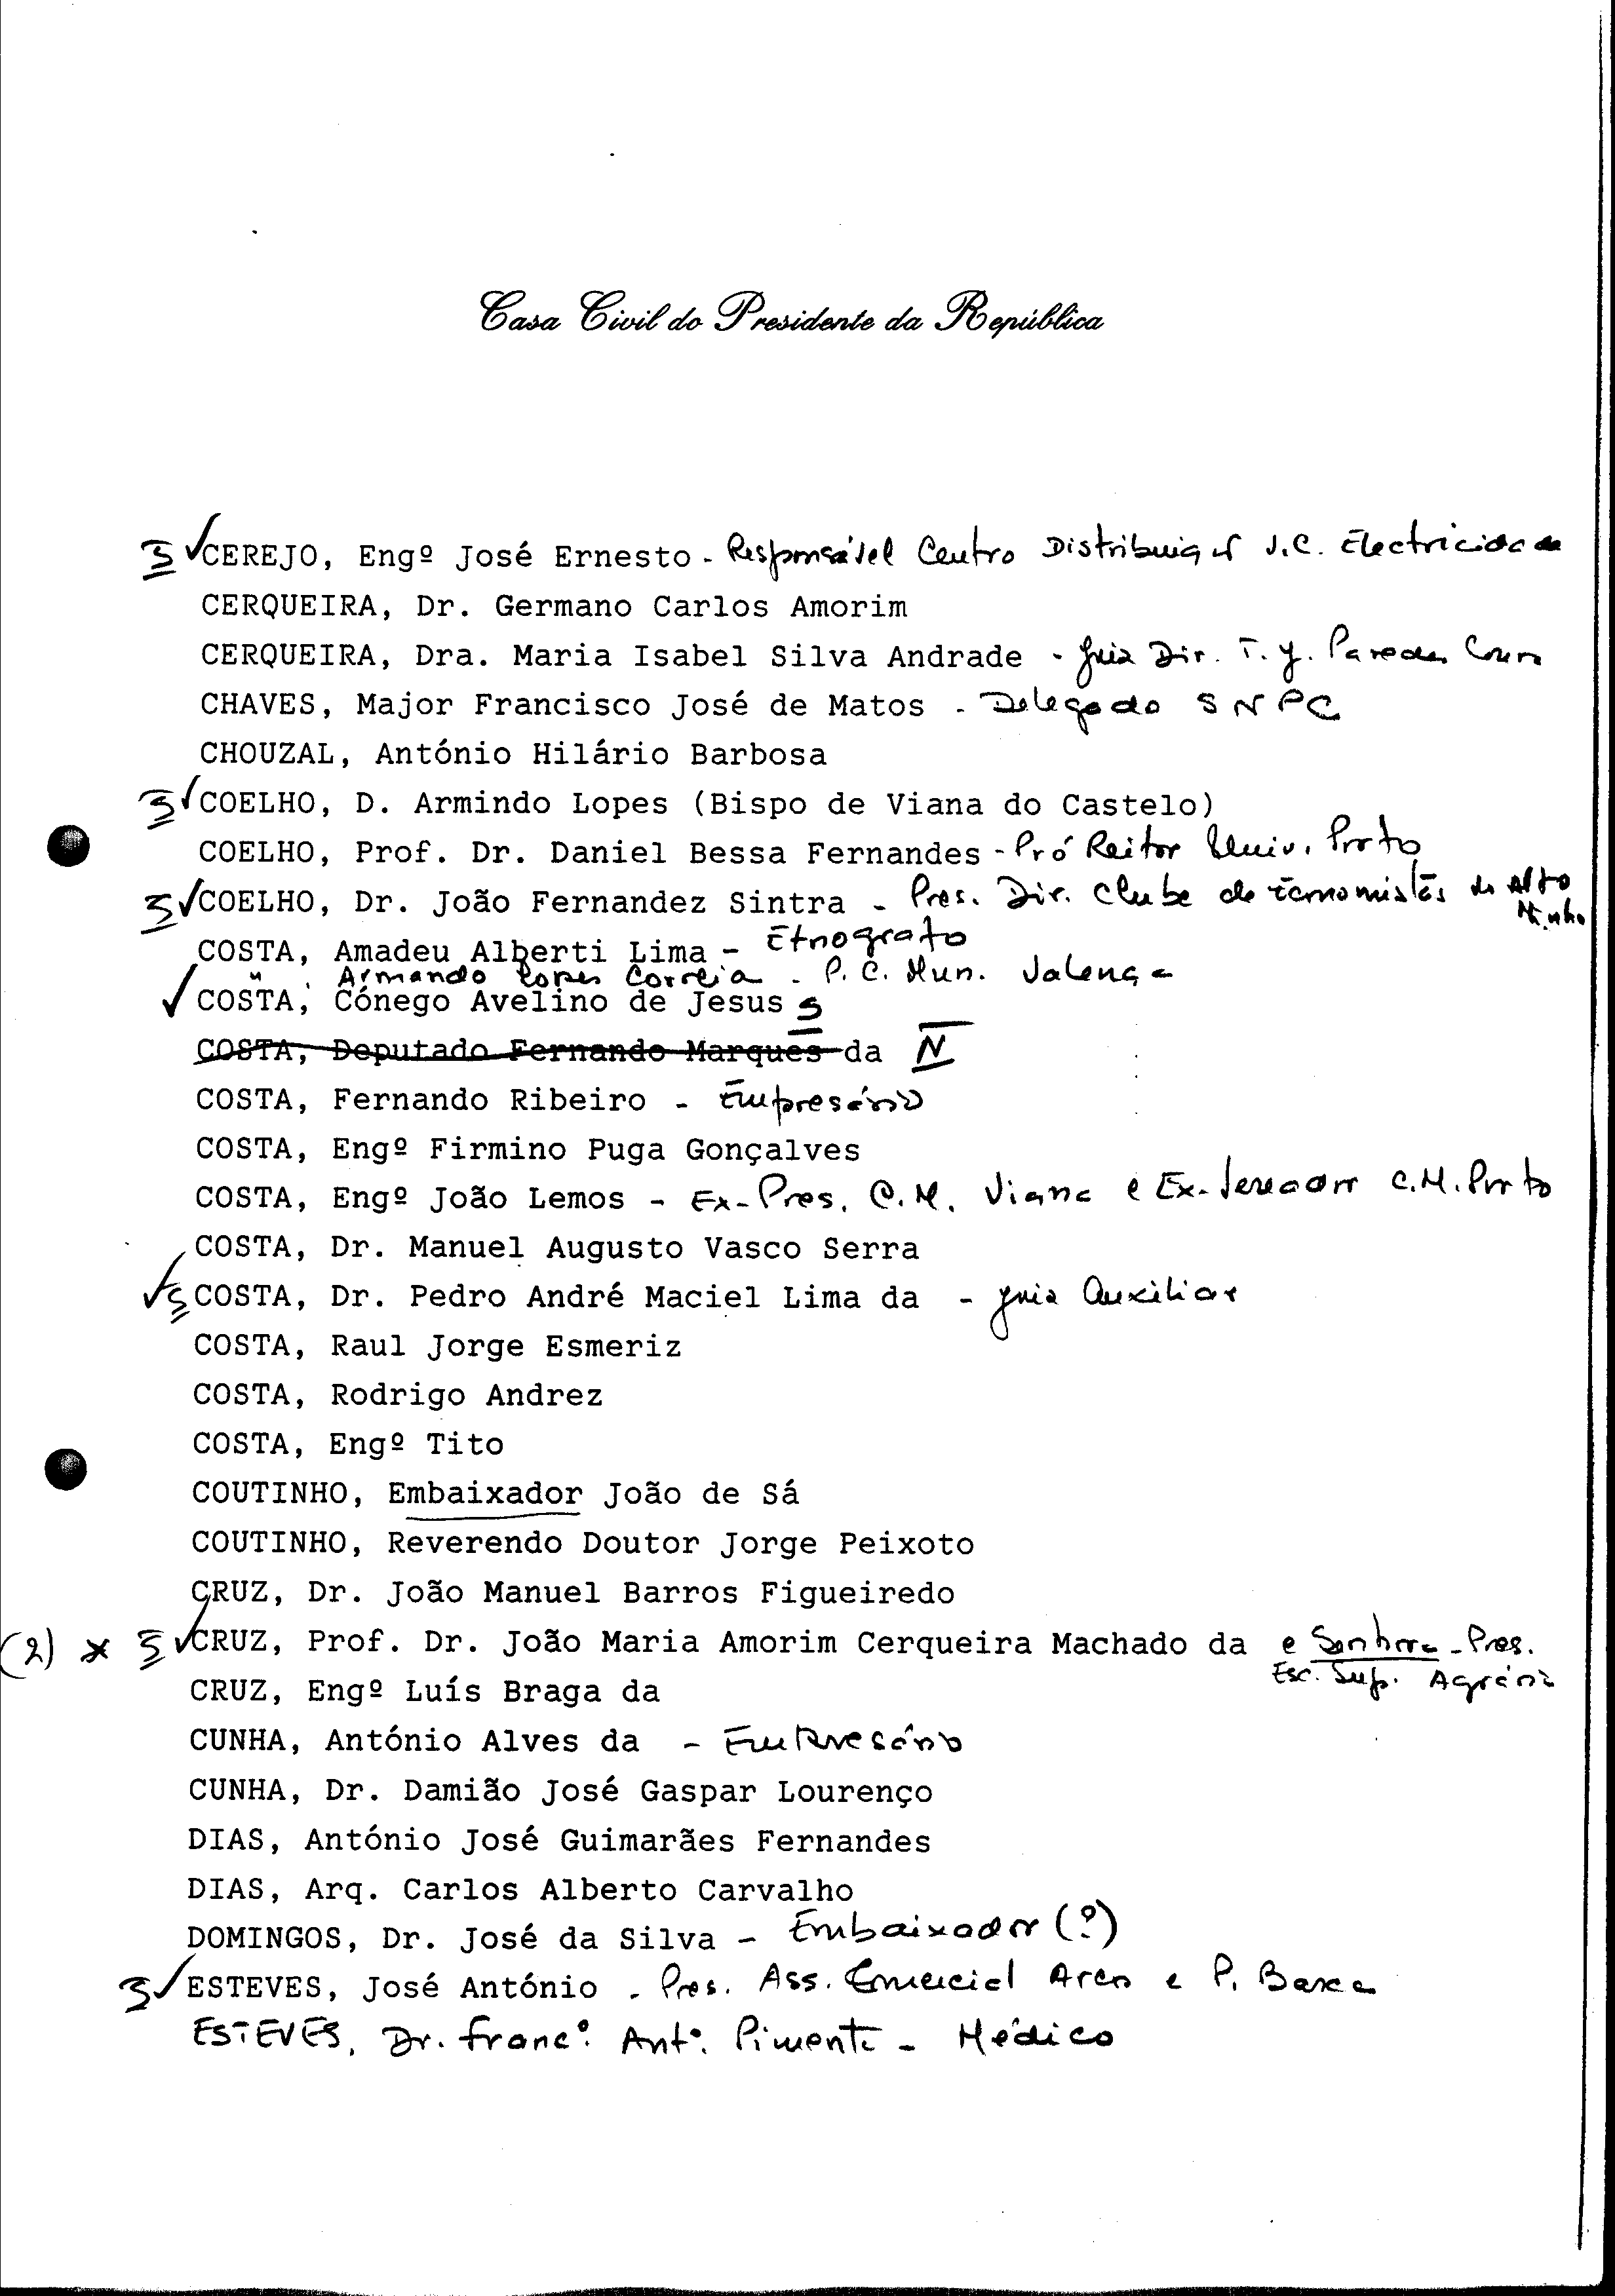 Casa Civil do Presidente da República
S ✓ CEREJO, Engº José Ernesto - Responsável Centro Distribuição V.C. Electricidade
CERQUEIRA, Dr. Germano Carlos Amorim
CERQUEIRA, Dra. Maria Isabel Silva Andrade - Juiz Dir. T. J. Paredes Coura
CHAVES, Major Francisco José de Matos - Delegado SNPC
CHOUZAL, António Hilário Barbosa
S ✓ COELHO, D. Armindo Lopes (Bispo de Viana do Castelo)
COELHO, Prof. Dr. Daniel Bessa Fernandes - Pró Reitor Univ. Porto
S ✓ COELHO, Dr. João Fernandez Sintra - Pres. Dir. Clube de Economistas do Alto
Minho
COSTA, Amadeu Alberti Lima - Etnografo
" , Armando Lopes Correia - P. C. Mun. Valença
✓ COSTA, Cónego Avelino de Jesus S
COSTA, Deputado Fernando Marques da N
COSTA, Fernando Ribeiro - Empresário
COSTA, Engº Firmino Puga Gonçalves
COSTA, Engº João Lemos - Ex-Pres. C.M. Viana e Ex-Vereador C.M. Porto
COSTA, Dr. Manuel Augusto Vasco Serra
✓ S COSTA, Dr. Pedro André Maciel Lima da - Juiz Auxiliar
COSTA, Raul Jorge Esmeriz
COSTA, Rodrigo Andrez
COSTA, Engº Tito
COUTINHO, Embaixador João de Sá
COUTINHO, Reverendo Doutor Jorge Peixoto
CRUZ, Dr. João Manuel Barros Figueiredo
(2) * S ✓ CRUZ, Prof. Dr. João Maria Amorim Cerqueira Machado da e Senhora - Pres.
Esc. Sup. Agrária
CRUZ, Engº Luís Braga da
CUNHA, António Alves da - Empresário
CUNHA, Dr. Damião José Gaspar Lourenço
DIAS, António José Guimarães Fernandes
DIAS, Arq. Carlos Alberto Carvalho
DOMINGOS, Dr. José da Silva - Embaixador (?)
S ✓ ESTEVES, José António - Pres. Ass. Comercial Arcos e P. Barca
ESTEVES, Dr. Francº. Antº. Pimenta - Médico